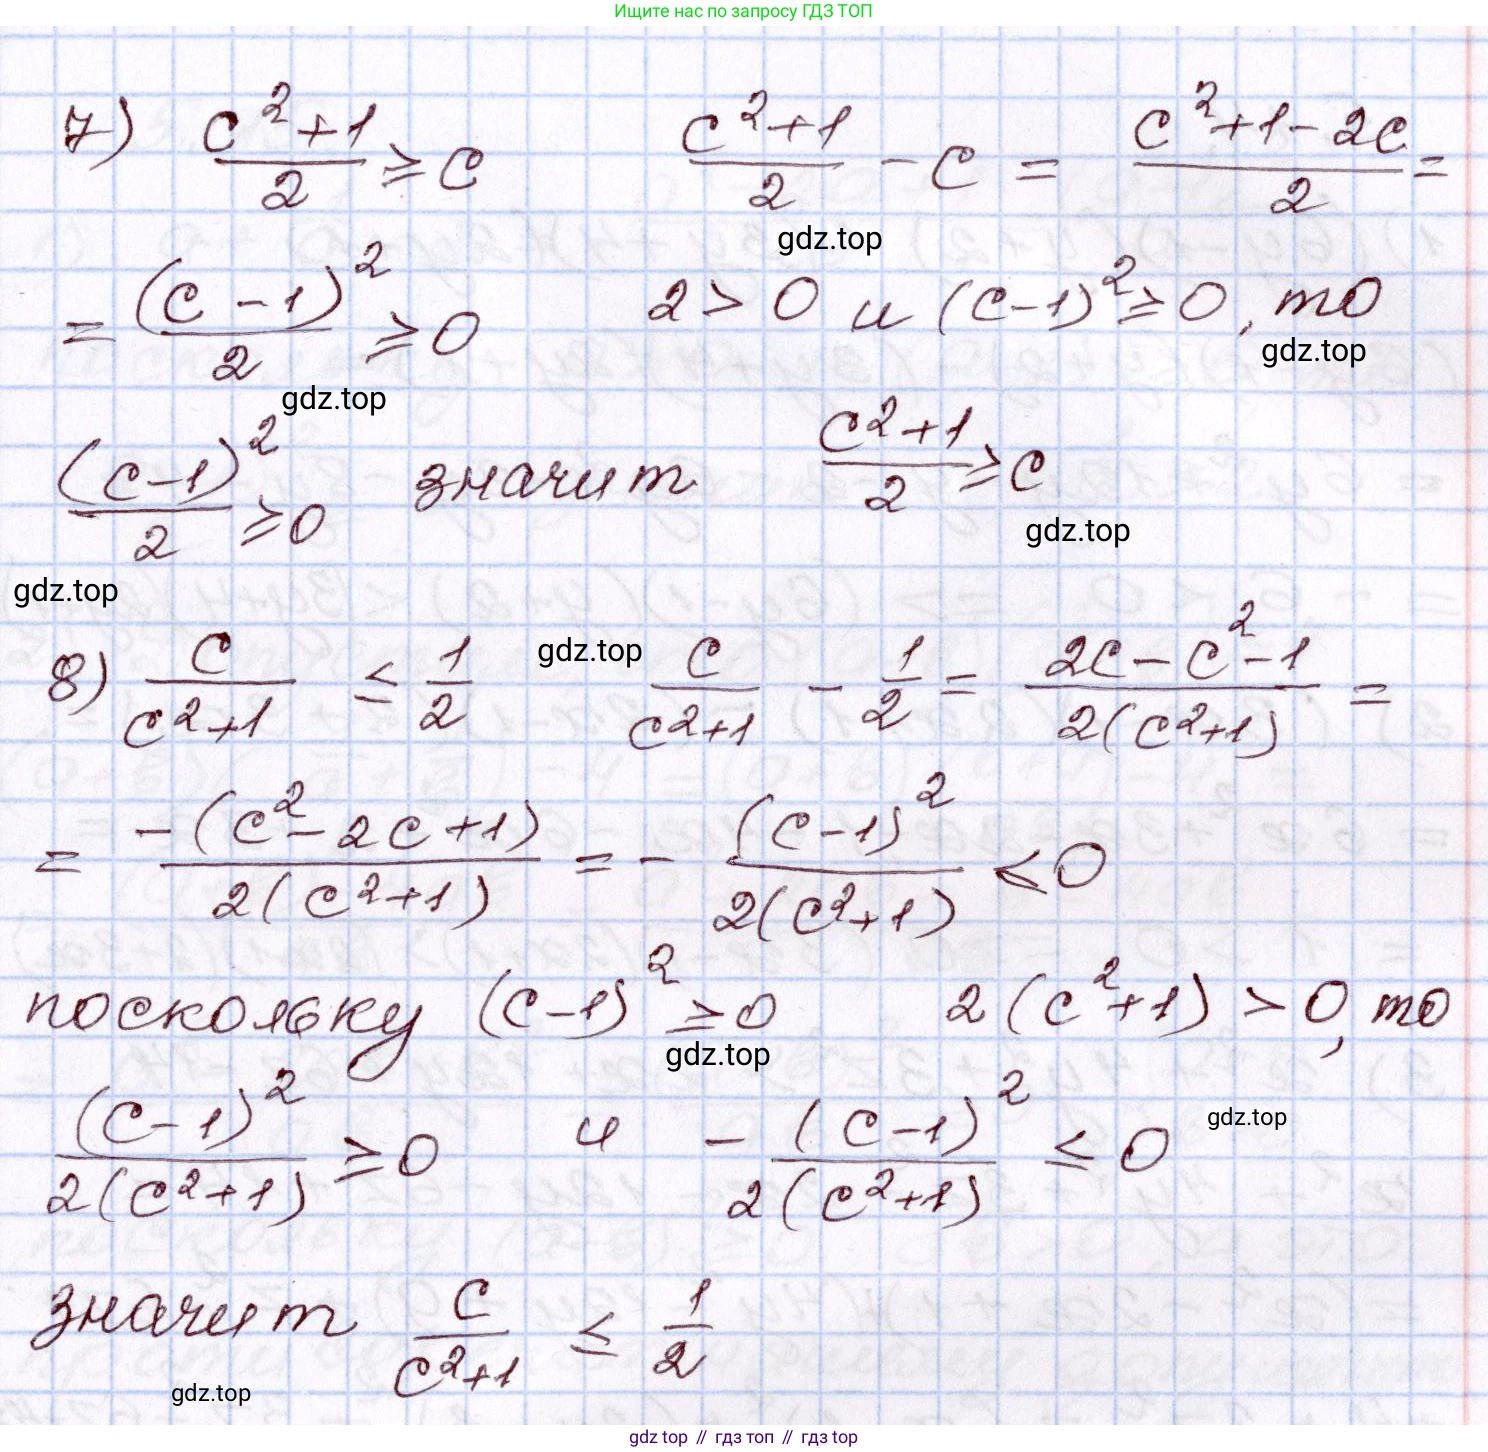 Ищите нас по запросу ГДЗ ТОП
7) (c²+1)/2 ≥ c (c²+1)/2 - c = (c²+1-2c)/2 =
gdz.top
= (c-1)²/2 ≥ 0 2 > 0 и (c-1)² ≥ 0, то
gdz.top
gdz.top
(c-1)²/2 ≥ 0 значит (c²+1)/2 ≥ c
gdz.top
gdz.top
8) c/(c²+1) ≤ 1/2 gdz.top c/(c²+1) - 1/2 = (2c-c²-1)/(2(c²+1)) =
= -(c²-2c+1)/(2(c²+1)) = - (c-1)²/(2(c²+1)) ≤ 0
поскольку (c-1)² ≥ 0 2(c²+1) > 0, то
gdz.top
(c-1)²/(2(c²+1)) ≥ 0 и - (c-1)²/(2(c²+1)) ≤ 0
gdz.top
значит c/(c²+1) ≤ 1/2
gdz.top
gdz top // гдз топ // гдз top